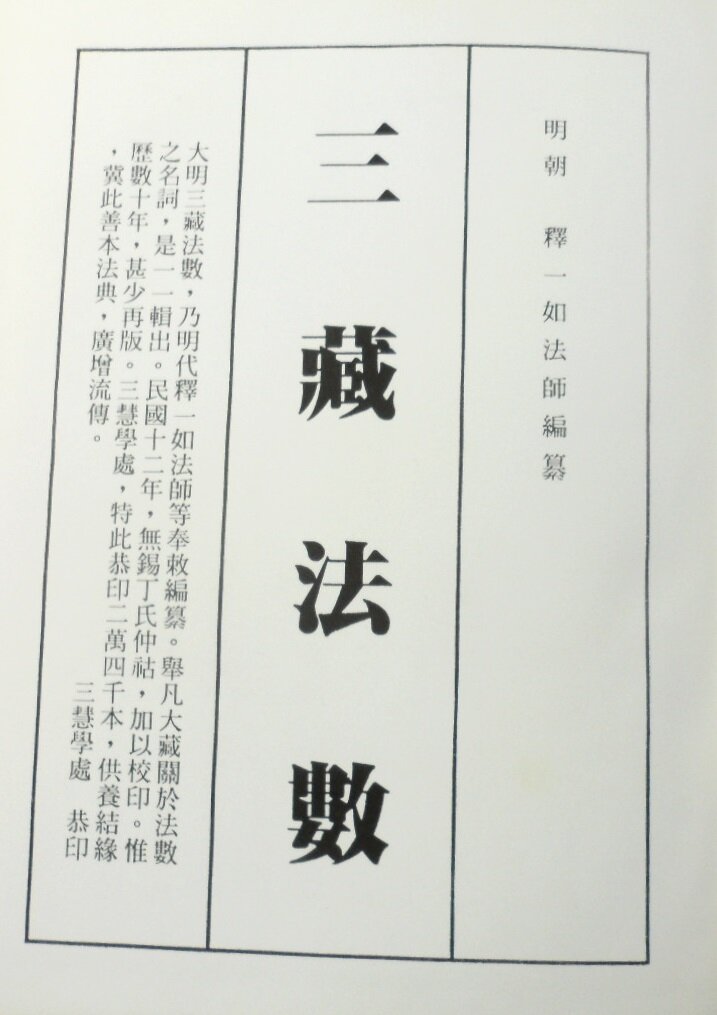 明朝 釋一如法師編纂
三藏法數
大明三藏法數，乃明代釋一如法師等奉敕編纂。舉凡大藏關於法數
之名詞，是一一輯出。民國十二年，無錫丁氏仲祜，加以校印。惟
歷數十年，甚少再版。三慧學處，特此恭印二萬四千本，供養結緣
，冀此善本法典，廣增流傳。
三慧學處 恭印